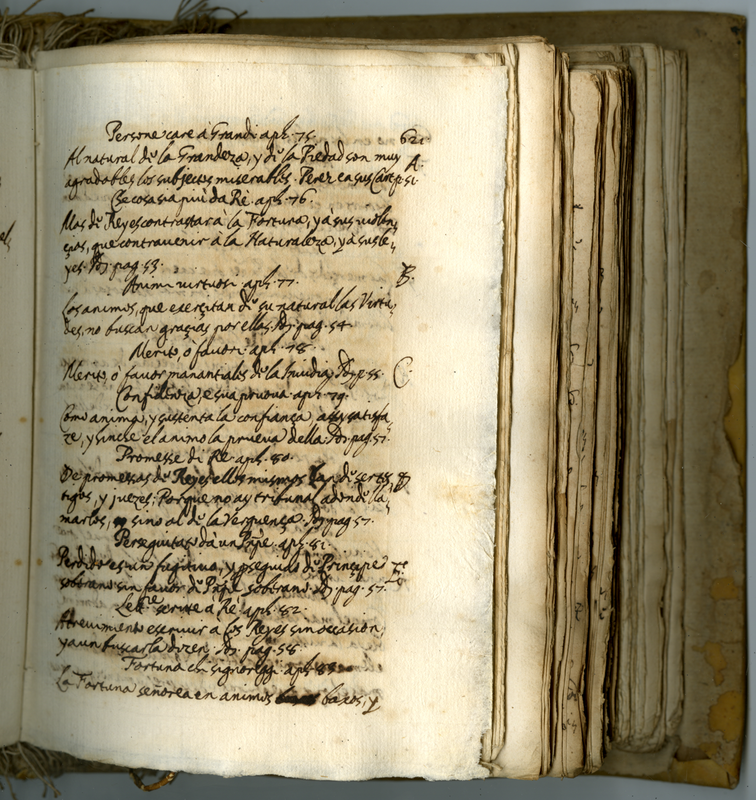 Persone care à Grandi aph. 75.
621
Al natural de la Grandeza, y de la Piedad son muy
A.
agradables los subjectos miserables. Perez ea sus Cart. p. 51.
Che cosa sa più da Rè. aph. 76.
Mas de Reyes contrastar à la Fortura, y à sus violen,,
çias, que contravenir à la Naturaleza, y à sus le,,
yes. pag. 53.
Animi virtuosi aph. 77.
B.
Los animos, que exercitan de su natural las Virtu,,
des, no buscan graçias por ellas. pag. 54
Merito, ò favori aph. 78.
Merito, ò favor manantiales de la Invidia. p. 55.
C.
Confidenza, e sua pruova. aph. 79.
Como anima, y sustenta la confiança assy satisfa,,
ze, y hinche el animo la prueva della. pag. 57.
Promesse di Rè. aph. 80.
De promessas de Reyes ellos mismos han de ser tes,,
tigos, y juezes: Porque no ay tribunal adonde lla,,
marlos, sino al de la Verguença. pag. 57.
Perseguitato da un Prnpe. aph. 81.
Perdido es un fugitivo, y perseguido de Prinçipe
soberano sin favor de soberano. pag. 57.
Lettre scritte a Rè. aph. 82.
Atrevimiento escrivir a los Reyes sin occasion,
y aun buscarla dizen. pag. 58.
Fortuna chi signoreggi. aph. 83.
La Fortuna señorea en animos baxos, y